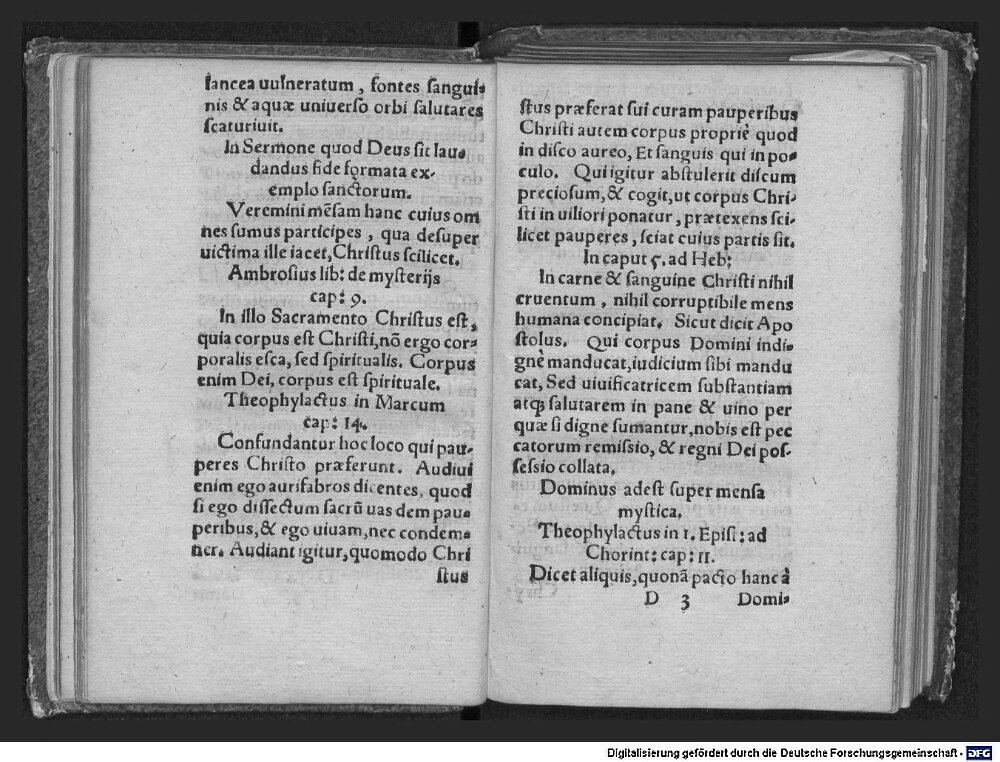 lancea uulneratum, fontes sangui-
nis & aquæ uniuerso orbi salutares
scaturiuit.
In Sermone quod Deus sit lau-
dandus fide formata ex-
emplo sanctorum.
Veremini mẽsam hanc cuius om
nes sumus participes, qua desuper
uictima ille iacet, Christus scilicet.
Ambrosius lib: de mysterijs
cap: 9.
In illo Sacramento Christus est,
quia corpus est Christi, nõ ergo cor-
poralis esca, sed spiritualis. Corpus
enim Dei, corpus est spirituale.
Theophylactus in Marcum
cap: 14.
Confundantur hoc loco qui pau-
peres Christo præferunt. Audiui
enim ego aurifabros dicentes, quod
si ego dissectum sacrũ uas dem pau-
peribus, & ego uiuam, nec condem-
ner. Audiant igitur, quomodo Chri
stus
stus præferat sui curam pauperibus
Christi autem corpus propriè quod
in disco aureo, Et sanguis qui in po-
culo. Qui igitur abstulerit discum
preciosum, & cogit, ut corpus Chri-
sti in uiliori ponatur, prætexens sci-
licet pauperes, sciat cuius partis sit.
In caput 5. ad Heb:
In carne & sanguine Christi nihil
cruentum, nihil corruptibile mens
humana concipiat. Sicut dicit Apo
stolus. Qui corpus Domini indi-
gnè manducat, iudicium sibi mandu
cat, Sed uiuificatricem substantiam
atqꝫ salutarem in pane & uino per
quæ si digne sumantur, nobis est pec
catorum remissio, & regni Dei pos-
sessio collata.
Dominus adest super mensa
mystica.
Theophylactus in 1. Epist: ad
Chorint: cap: 11.
Dicet aliquis, quonã pacto hanc à
D 3 Domi-
Digitalisierung gefördert durch die Deutsche Forschungsgemeinschaft - DFG